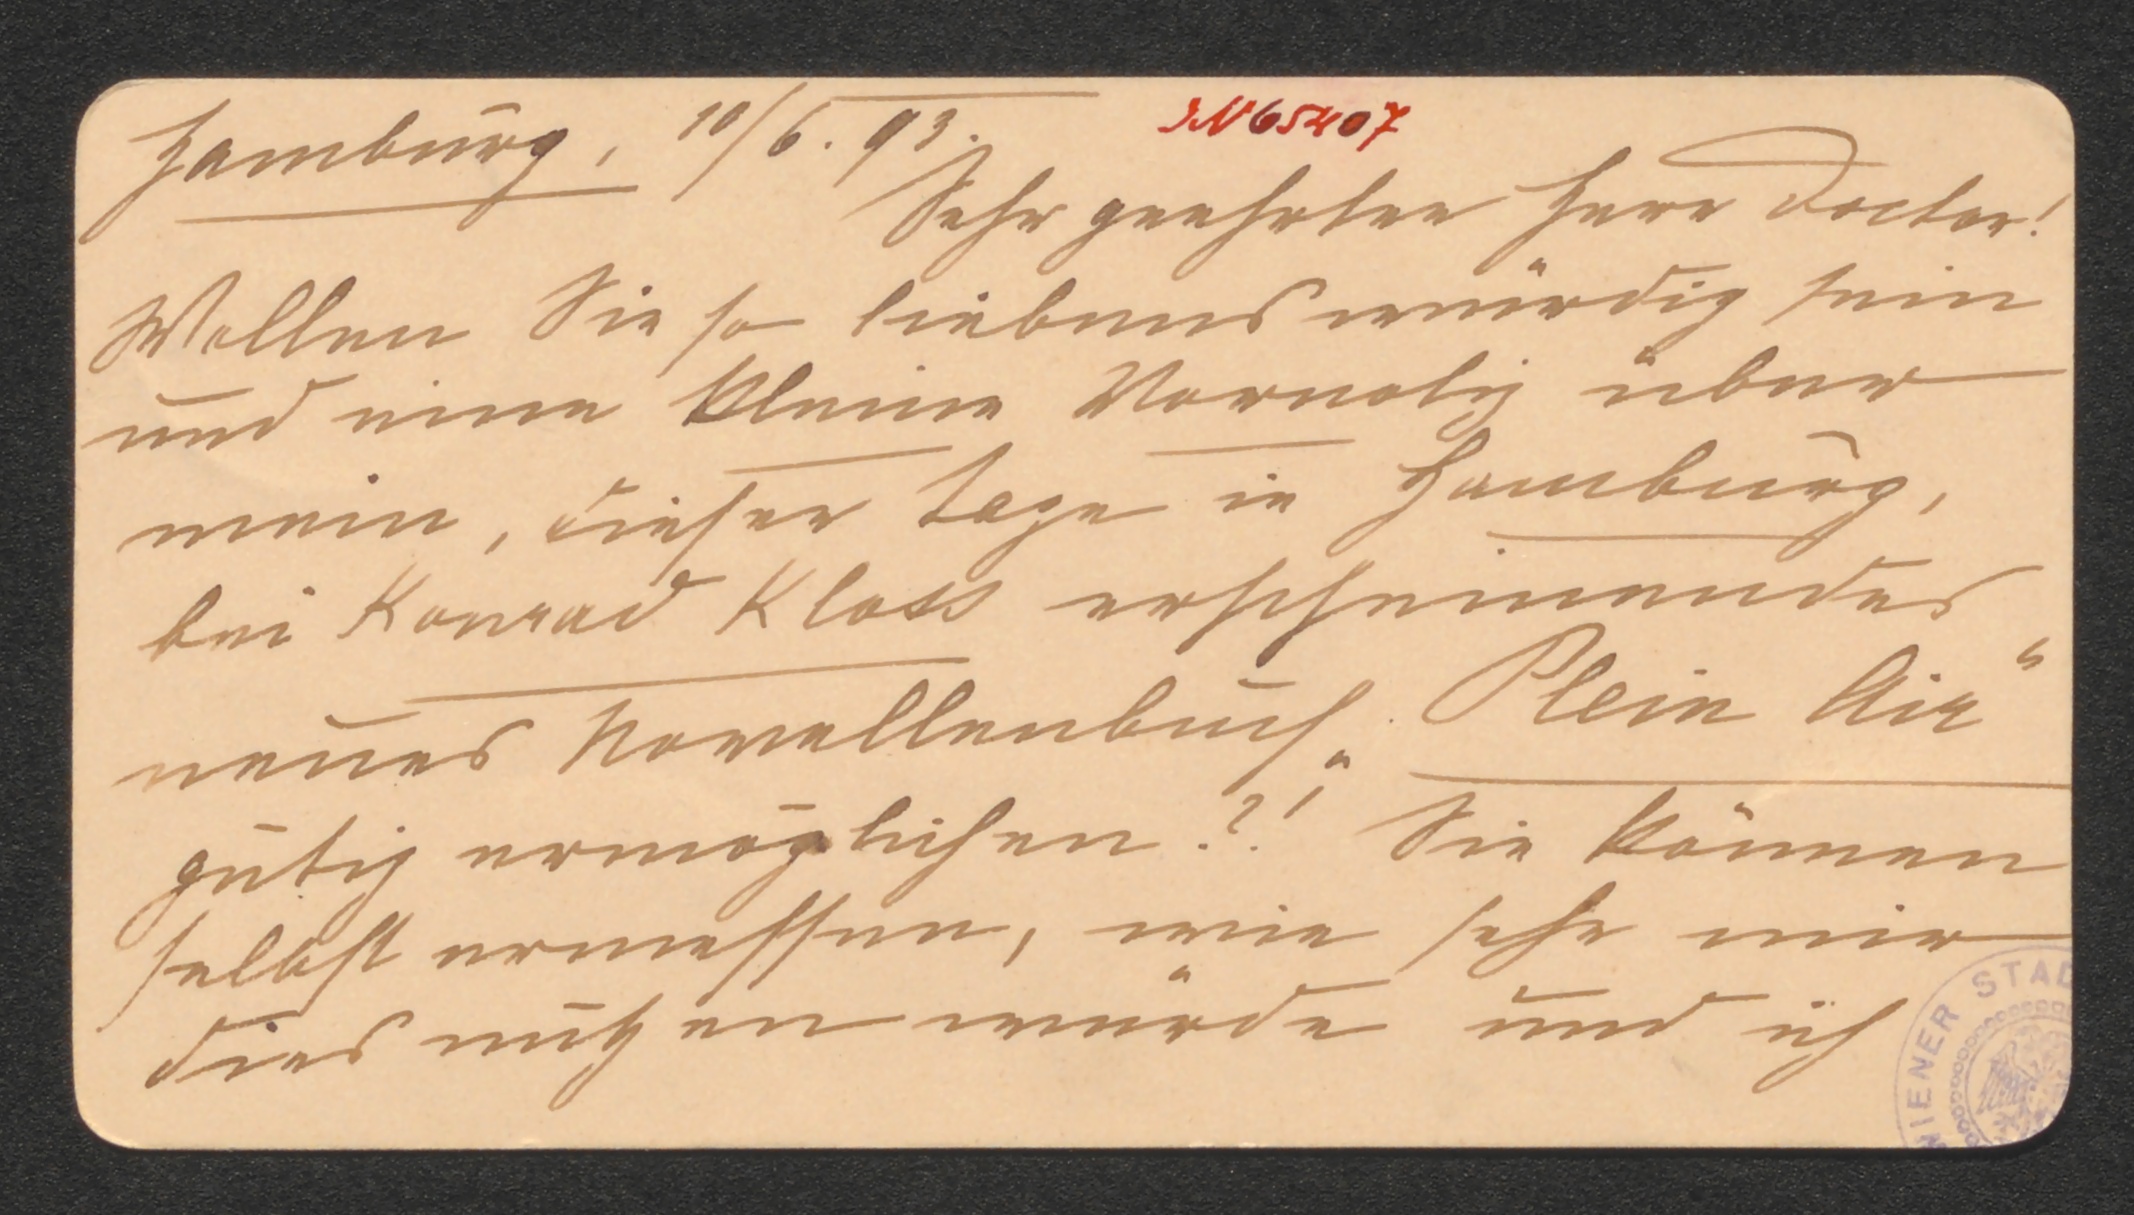 Hamburg, 10/6. 93.
IN 65407
Sehr geehrter Herr Doctor!
Wollen Sie so liebenswürdig sein
und eine kleine Vornotiz über
mein, dieser Tage in Hamburg,
bei Konrad Kloss erscheinendes
neues Novellenbuch „Plein Air“
gütig ermöglichen?! Sie können
selbst ermessen, wie sehr mir
dies nützen würde und ich
WIENER STAD